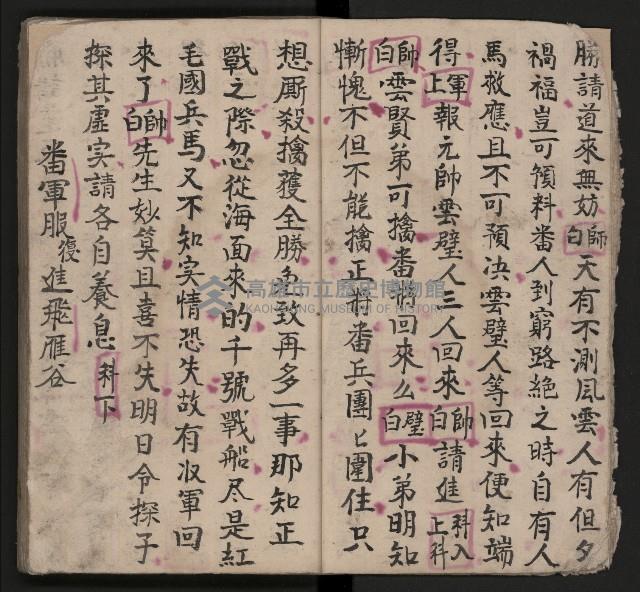 勝請道來無妨帥白天有不測風雲人有但夕
禍福豈可預料番人到窮路絕之時自有人
馬救應且不可預決雲璧人等回來便知端
得軍上報元帥雲璧人三人回來帥白請進科入上科
帥白雲賢弟可擒番將回來么璧白小弟明知
慚愧不但不能擒正將番兵團匕圍住只
想厮殺擒獲全勝多致再多一事那知正
戰之際忽從海面來的千號戰船尽是紅
毛國兵馬又不知实情恐失故有收軍回
來了帥白先生妙算且喜不失明日令探子
探其虛实請各自養息科下
番軍服復進飛雁谷
高雄市立歷史博物館
KAOHSIUNG MUSEUM OF HISTORY